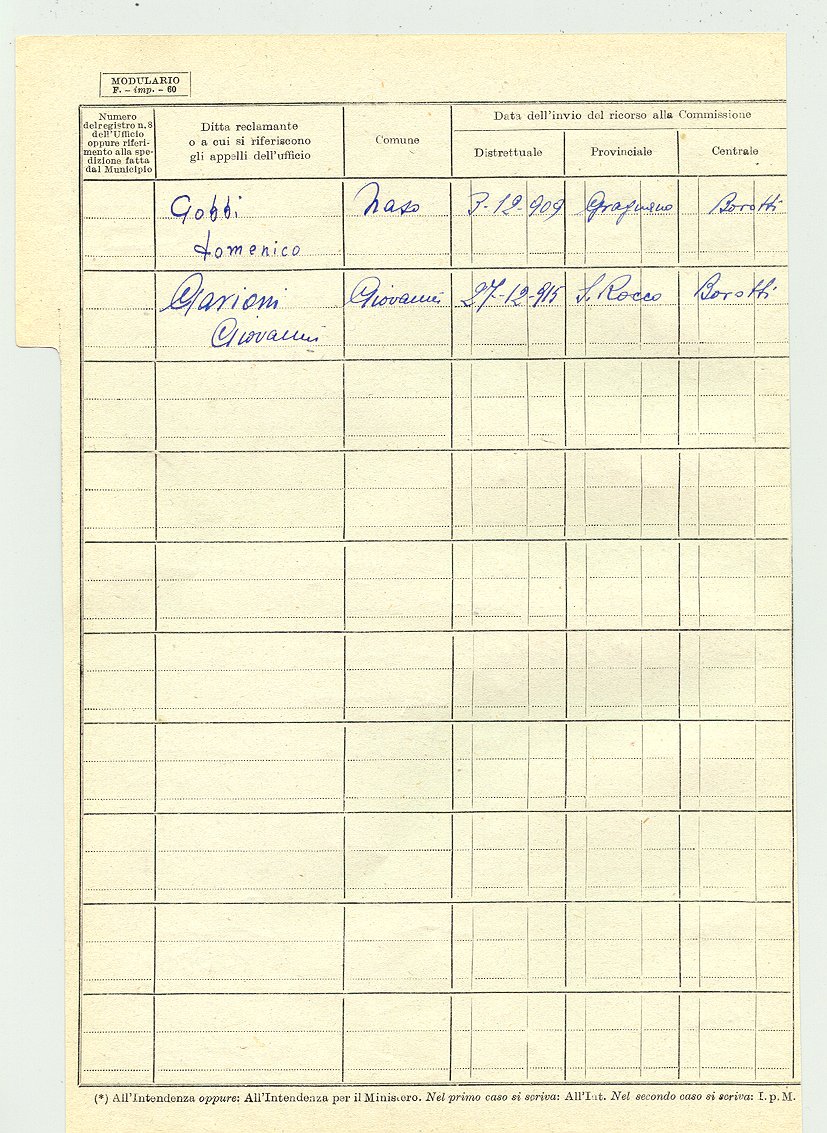 MODULARIO
F. - imp. - 60
Numero
del registro n. 8
dell'Ufficio
oppure riferi-
mento alla spe-
dizione fatta
dal Municipio
Ditta reclamante
o a cui si riferiscono
gli appelli dell'ufficio
Comune
Data dell'invio del ricorso alla Commissione
Distrettuale
Provinciale
Centrale
Gobbi Naso 3-12-909 Borotti
domenico
Garioni Giovanni 27-12-915 S. Rocco Borotti
Giovanni
(*) All'Intendenza oppure: All'Intendenza per il Ministero. Nel primo caso si scriva: All'Int. Nel secondo caso si scriva: I. p. M.